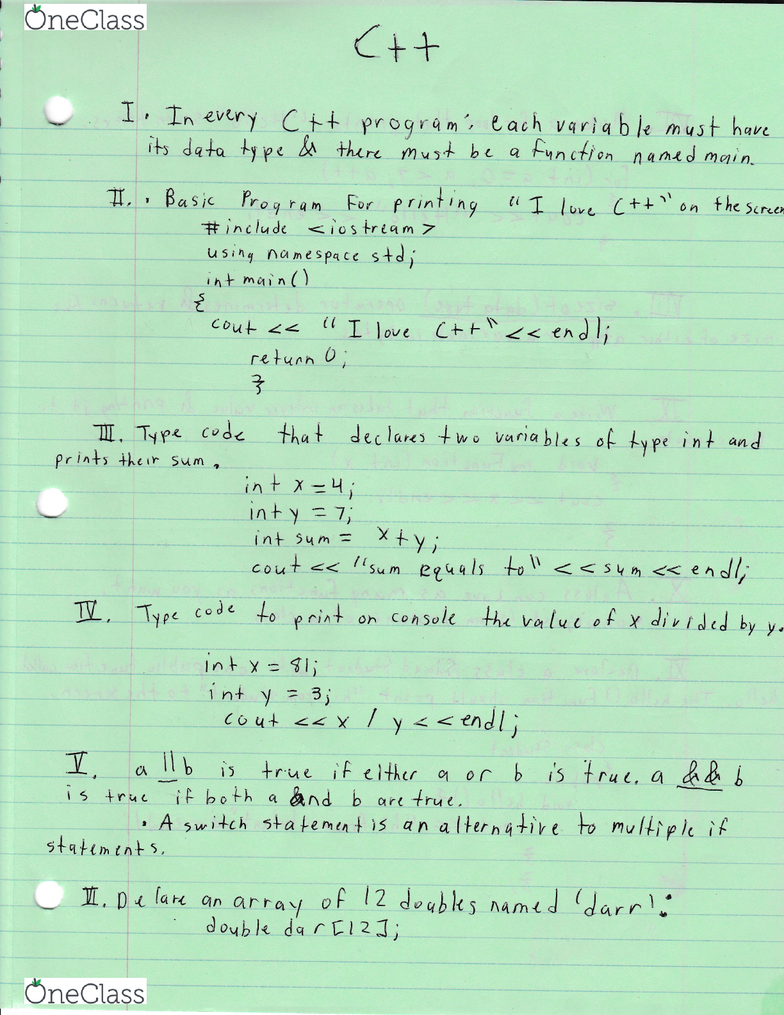 OneClass
C++
I. In every C++ program: each variable must have
its data type & there must be a function named main.
II. • Basic Program For printing "I love C++" on the screen
#include <iostream>
using namespace std;
int main()
{
cout << "I love C++" << endl;
return 0;
}
III. Type code that declares two variables of type int and
prints their sum.
int x = 4;
int y = 7;
int sum = x+y;
cout << "sum equals to" << sum << endl;
IV. Type code to print on console the value of x divided by y.
int x = 81;
int y = 3;
cout << x / y << endl;
V. a || b is true if either a or b is true. a && b
is true if both a and b are true.
• A switch statement is an alternative to multiple if
statements.
VI. Declare an array of 12 doubles named 'darr':
double dar[12];
OneClass